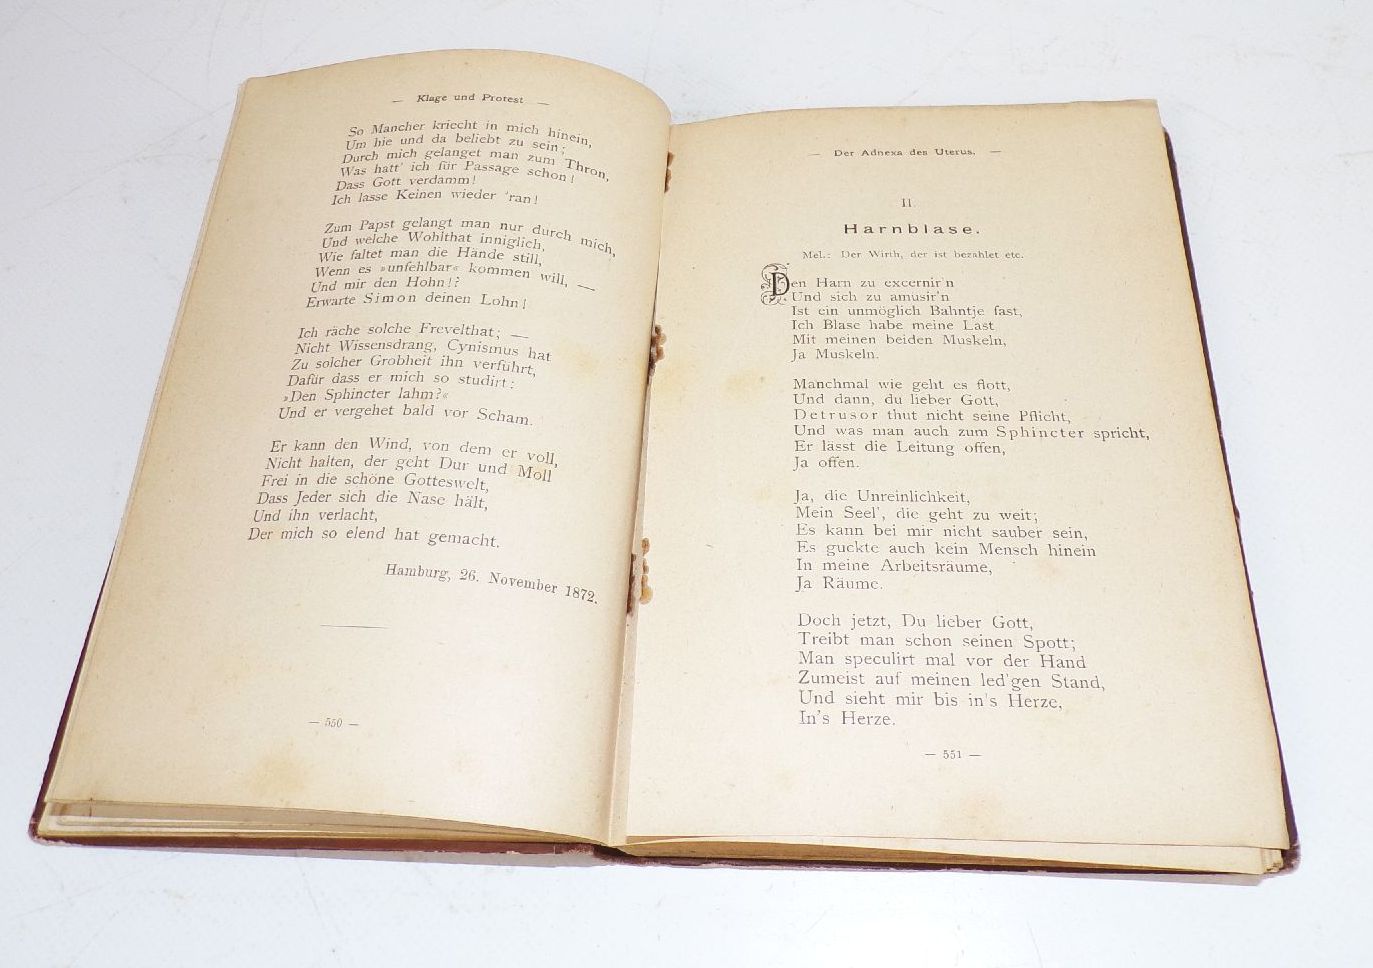 — Klage und Protest —
So Mancher kriecht in mich hinein,
Um hie und da beliebt zu sein;
Durch mich gelanget man zum Thron,
Was hatt' ich für Passage schon!
Dass Gott verdamm!
Ich lasse Keinen wieder 'ran!
Zum Papst gelangt man nur durch mich,
Und welche Wohlthat inniglich,
Wie faltet man die Hände still,
Wenn es »unfehlbar« kommen will, —
Und mir den Hohn!?
Erwarte Simon deinen Lohn!
Ich räche solche Frevelthat; —
Nicht Wissensdrang, Cynismus hat
Zu solcher Grobheit ihn verführt,
Dafür dass er mich so studirt:
»Den Sphincter lahm?«
Und er vergehet bald vor Scham.
Er kann den Wind, von dem er voll,
Nicht halten, der geht Dur und Moll
Frei in die schöne Gotteswelt,
Dass Jeder sich die Nase hält,
Und ihn verlacht,
Der mich so elend hat gemacht.
Hamburg, 26. November 1872.
— 550 —
— Der Adnexa des Uterus. —
II.
Harnblase.
Mel.: Der Wirth, der ist bezahlet etc.
Den Harn zu excernir'n
Und sich zu amusir'n
Ist ein unmöglich Bahntje fast,
Ich Blase habe meine Last
Mit meinen beiden Muskeln,
Ja Muskeln.
Manchmal wie geht es flott,
Und dann, du lieber Gott,
Detrusor thut nicht seine Pflicht,
Und was man auch zum Sphincter spricht,
Er lässt die Leitung offen,
Ja offen.
Ja, die Unreinlichkeit,
Mein Seel', die geht zu weit;
Es kann bei mir nicht sauber sein,
Es guckte auch kein Mensch hinein
In meine Arbeitsräume,
Ja Räume.
Doch jetzt, Du lieber Gott,
Treibt man schon seinen Spott;
Man speculirt mal vor der Hand
Zumeist auf meinen led'gen Stand,
Und sieht mir bis in's Herze,
In's Herze.
— 551 —